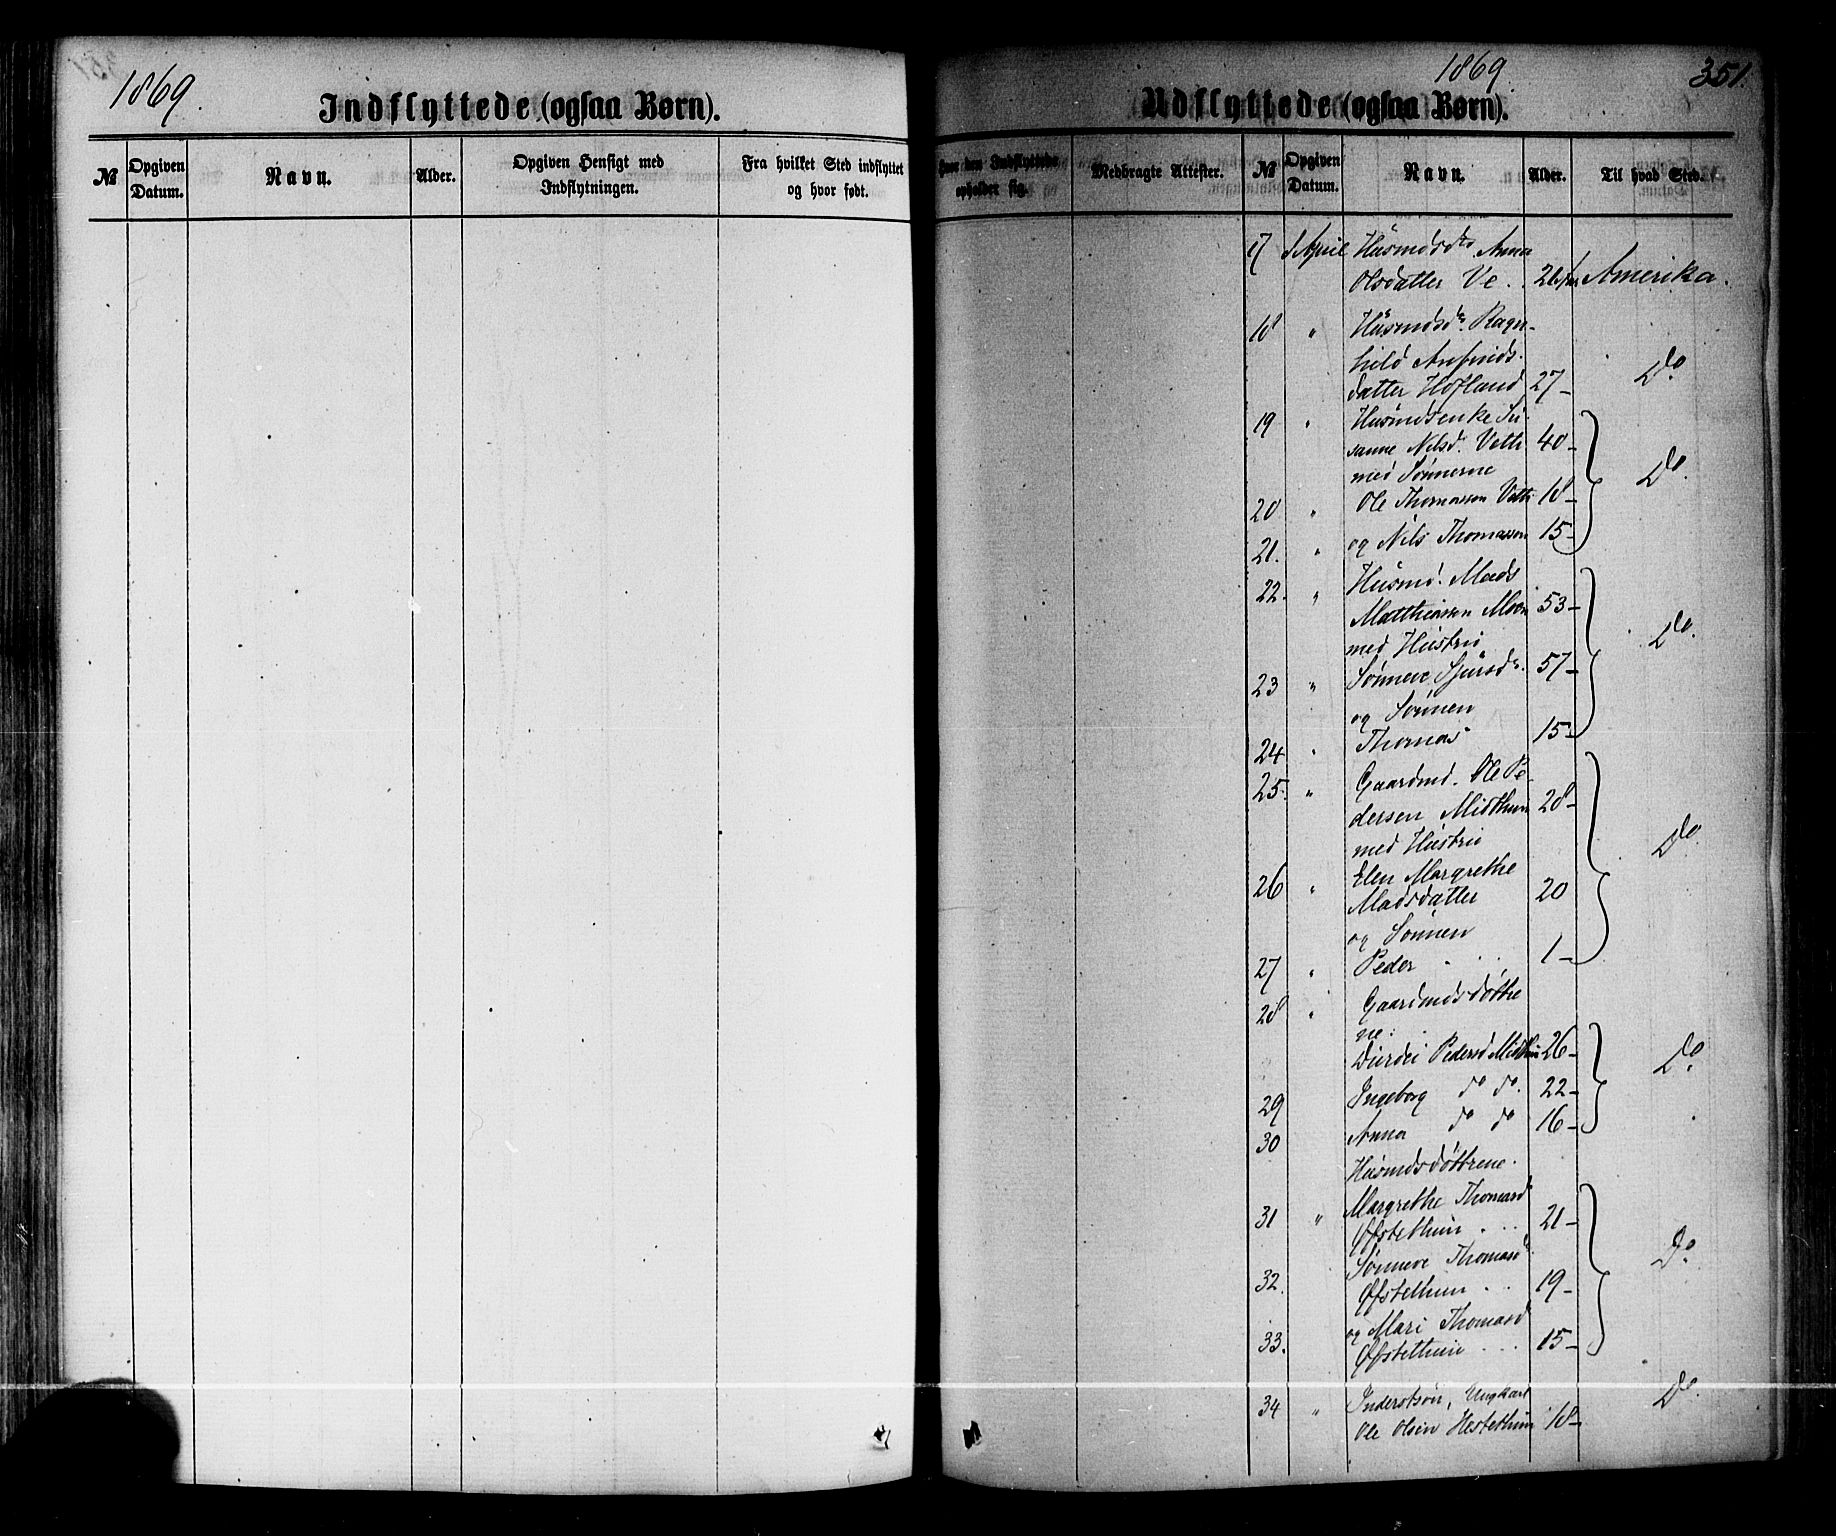 1869.
Indflyttede (ogsaa Børn).
№
Opgiven Datum.
Navn.
Alder.
Opgiven Hensigt med Indflytningen.
Fra hvilket Sted indflyttet og hvor født.
1869.
351.
Udflyttede (ogsaa Børn).
Hvor den Indflyttede opholder sig.
Medbragte Attester.
№
Opgiven Datum.
Navn.
Alder.
Til hvad Sted.
17 April Husmdsdtr Anna
Olsdatter Ve. 26 Amerika.
18 " Husmdsdr. Ragn-
hild Anfinds-
datter Hofland 27 - Do
19 " Husmdsenke Su-
sanne Nelsd. Vetti 40 -
med Sønnerne Do.
20 " Ole Thomassen Vetti 18 -
21. " og Nils Thomassen 15 -
22. " Husmd. Mads
Matthiassen Moen 53 -
med Hustru Do.
23 " Sønneve Sjursdr. 57 -
og Sønnen
24 " Thomas 15 -
25. " Gaardmd. Ole Pe-
dersen Midthun 28 -
med Hustru Do.
26 " Elen Margrethe
Madsdatter 20
og Sønnen
27 " Peder 1 -
28 " Gaardmdsdøttre
ne:
Durdei Pedersd Midthun 26 - Do
29 Ingeborg do do. 22 -
30 Anna do do 16 -
Husmdsdøttrene.
31 " Margrethe Thomasd
Øfstethun . . . 21 -
32. Sønneve Thomasd Do
Øfstethun . . . 19 -
33. og Mari Thomasd
Øfstethun . . . 15 -
34 " Inderstsøn, Ungkarl Do.
Ole Olsen Hestethun 18 -